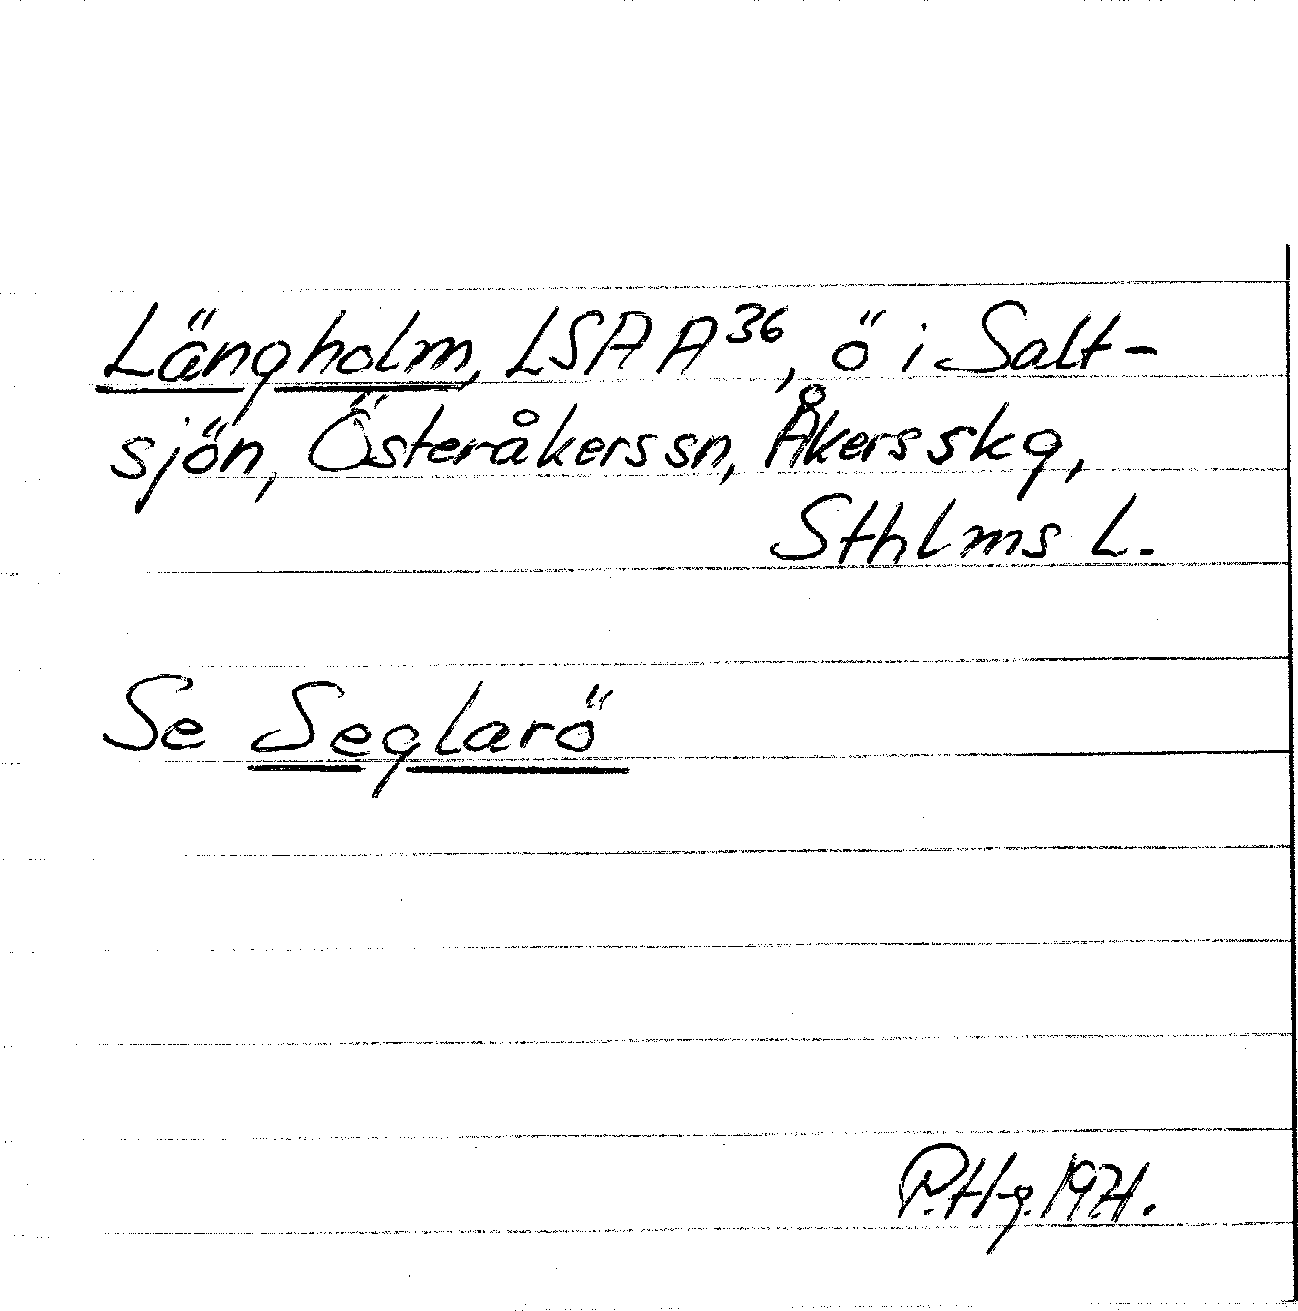 Längholm, LSA A36, ö i Salt-
sjön, Österåkers sn, Åkers skg,
Sthlms l.
Se Seglarö
R.Hg. 1971.